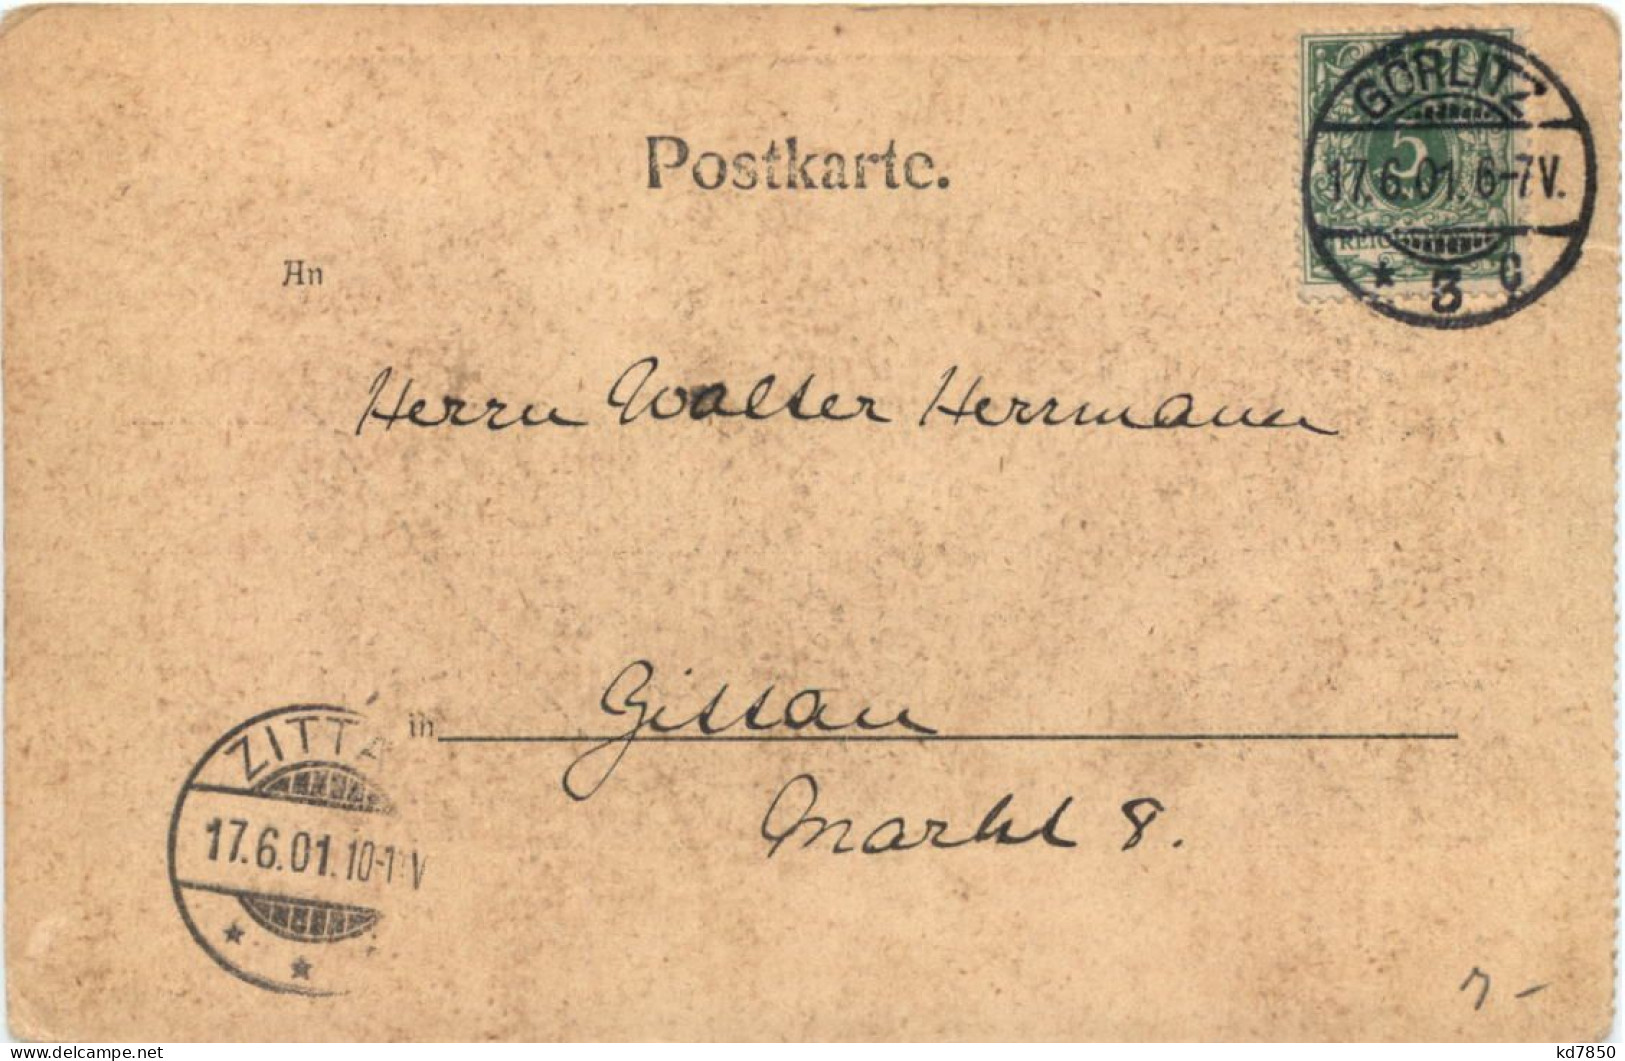 GÖRLITZ
5
17.6.01.6-7V.
* 3 C
Postkarte.
An
Herrn Walter Herrmann
in Zittau
Markt 8.
ZITTA
17.6.01.10-11V
kd7850